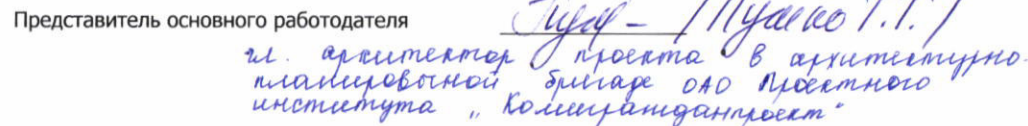 Представитель основного работодателя
гл. архитектор проекта в архитектурно-
планировочной бригаде ОАО Проектного
института „Комигражданпроект"